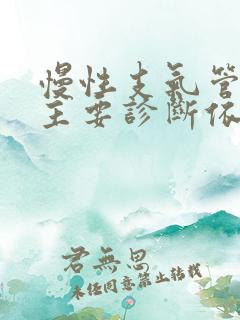 慢性支氣管
主要診斷依
君無思
未任同意禁止轉載